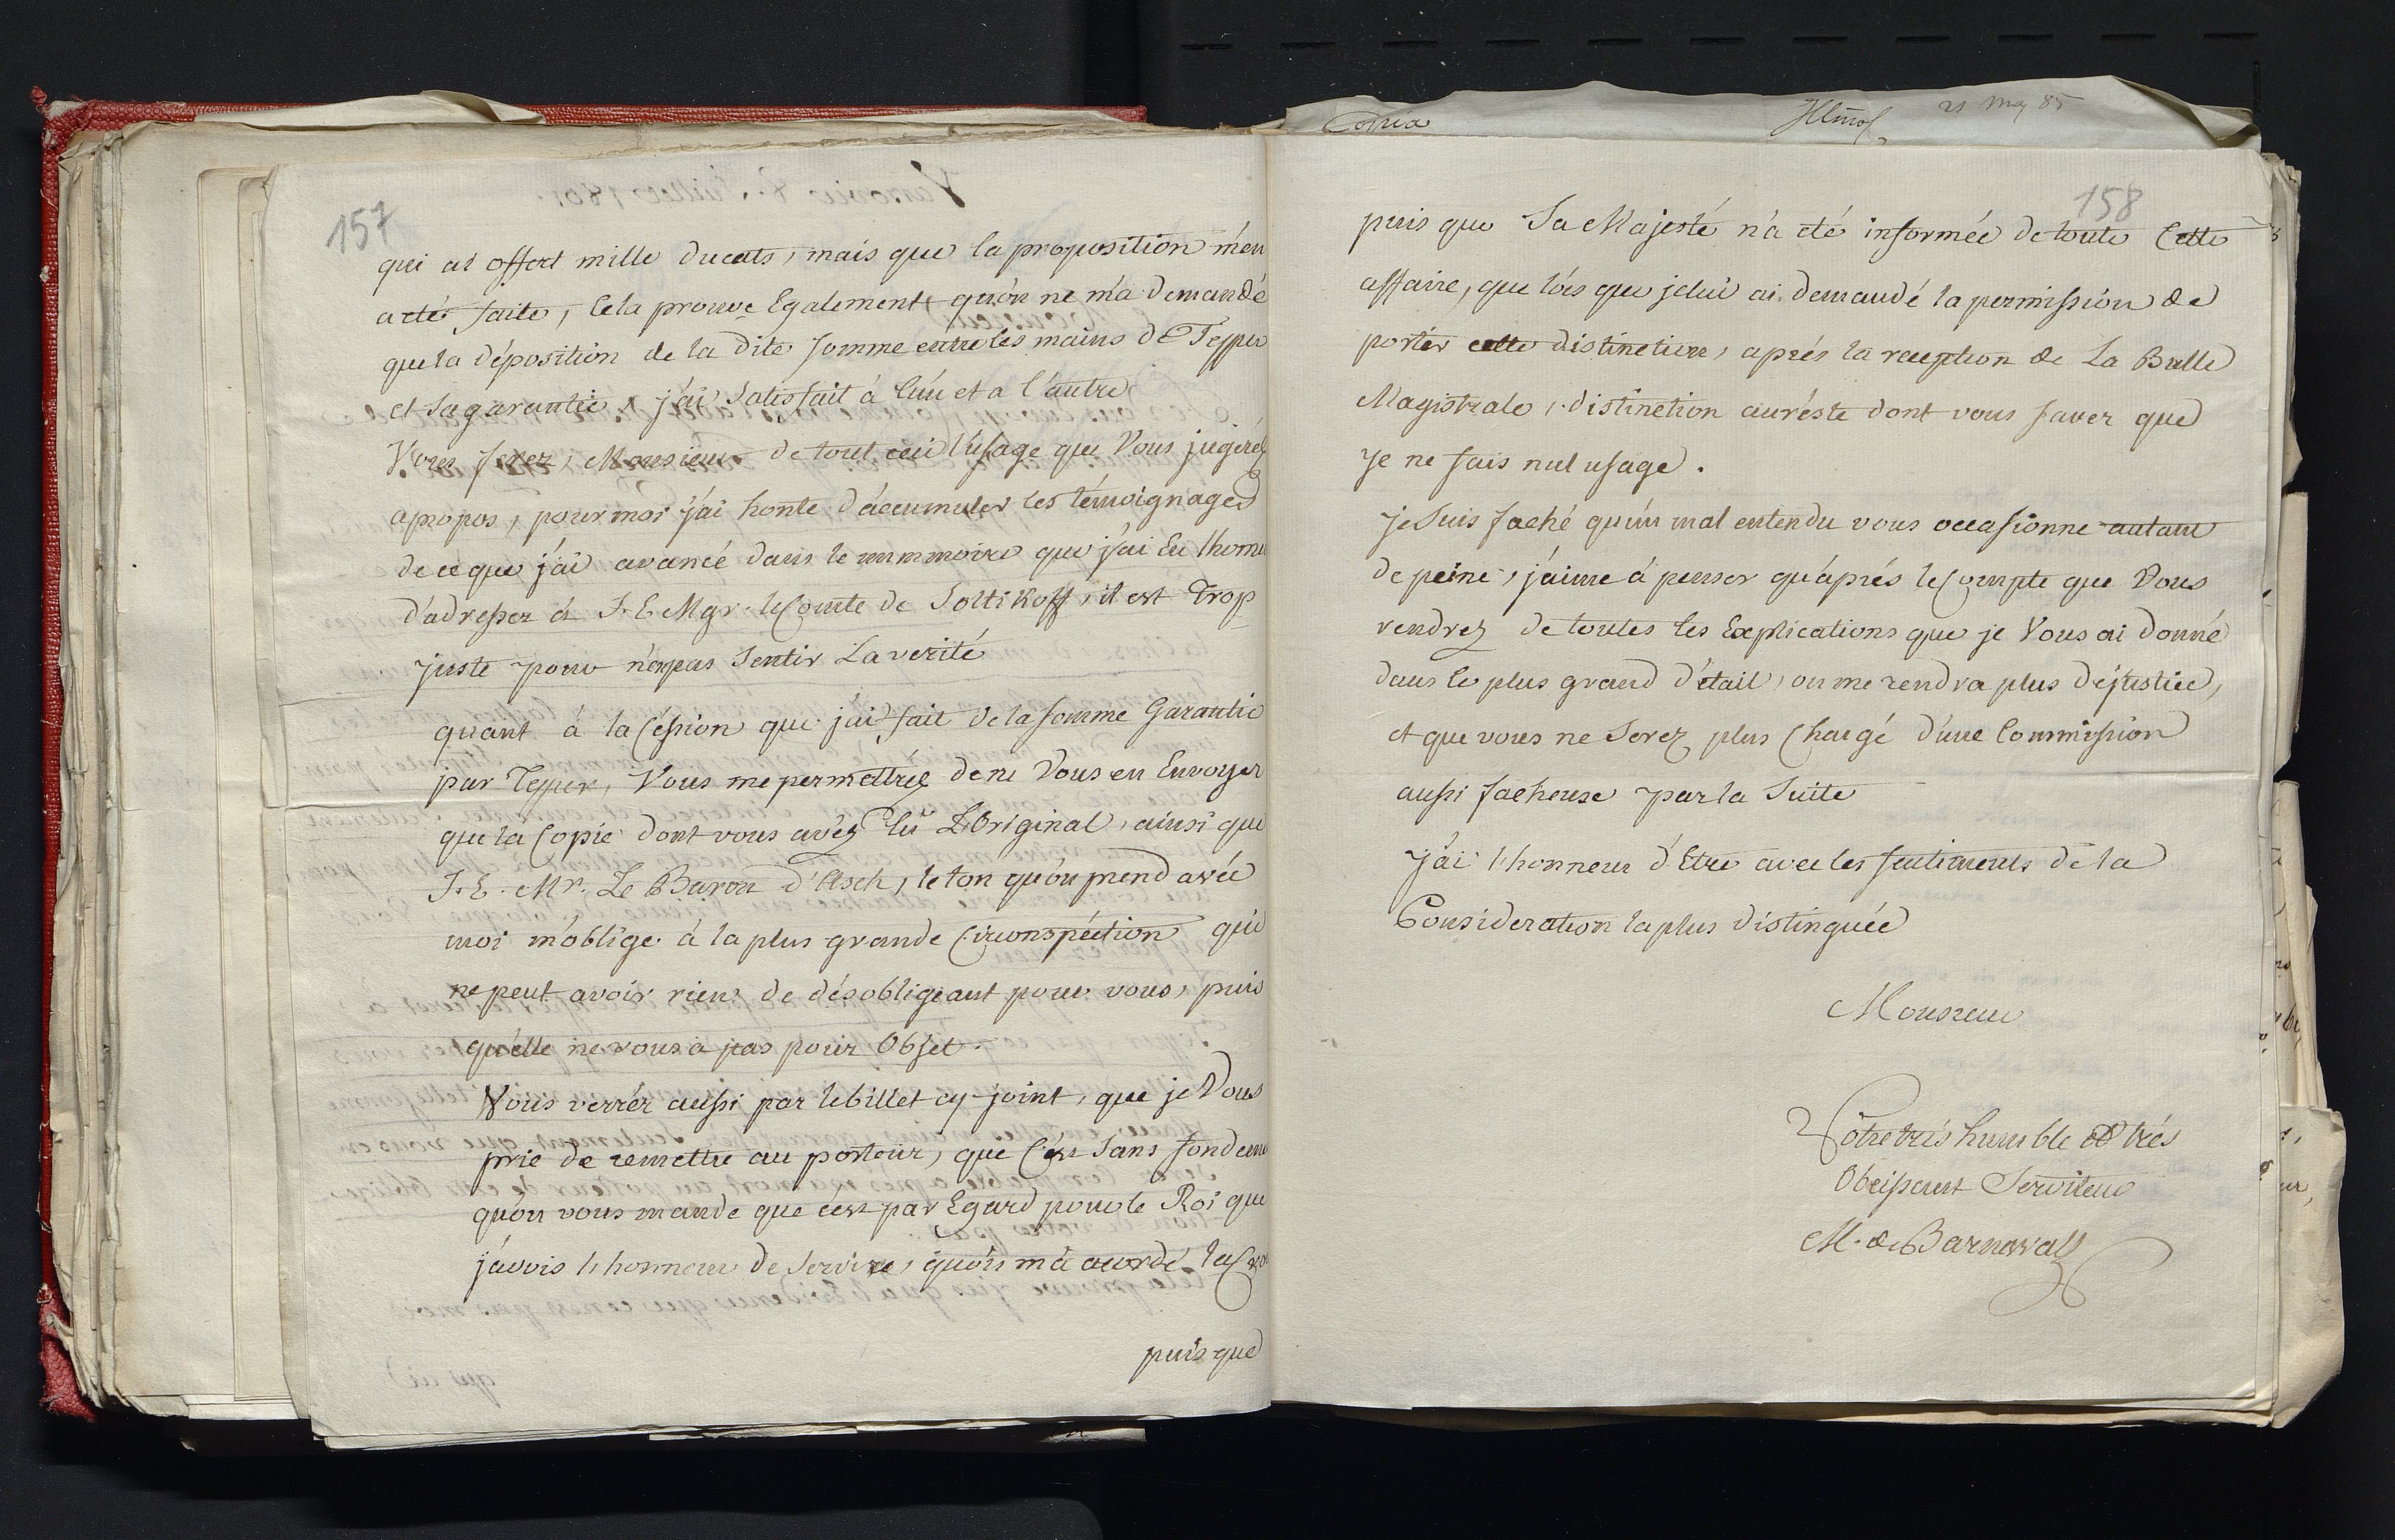 157
qui ai offert mille Ducats, mais que la proposition m'en
a eté faite, Cela prouve Egalement qu'ón ne m'a Demandé
que la déposition de la dite somme entre les mains de Tepper
et sa garantie, j'ai Satisfait à l'ún et a l'autre
Vous ferez, Monsieur de tout ceci l'usage que Vous jugeréz
apropos, pour moi j'ai honte d'áccumuler les témoignages
de ce que j'ai avancé dans le memmoire que j'ai Eu lhonn
d'adresser à S. E Mgr. le Comte de Soltikoff, il est Trop
juste pour n'en pas Sentir La verité
quant à la Céssion que j'ai fait de la somme Garantie
par Tepper, Vous me permettréz de ne Vous en Envoyer
que la Copie dont vous avéz lú L'Original, ainsi que
S. E. Mr. Le Baron d'Asch, le ton qu'ón prend avéc
moi m'óblige à la plus grande Circonspéction qui
ne peut avoir rien de désobligeant pour vous, puis
qu'elle ne vous a pas pour Objet.
Vous verréz aussi par le billet cy-joint, que je Vous
prie de remettre au porteur, que C'ést Sans fondem
qu'on vous mande que c'ést par Egard pour le Roi que
j'avois l'honneur de Servire, qu'ón m'á acordé la Cro
puis que
Copia
Illmo
21 May 85
158
puis que Sa Majesté n'a eté informée de toute Cette
affaire, que lórs que je lui ai demandé la permission de
portér cette distinction, aprés la reception de La Bulle
Magistrale, distinction aureste dont vous saver que
je ne fais nul usage.
je Suis faché qu'ún mal entendu vous occasionne autant
de peine, j'aime à penser qu'áprés le Compte que Vous
rendrez de toutes les Explications que je Vous ai donné
dans le plus grand d'étail, on me rendra plus de justice,
et que vous ne Serez plus Chargé d'une Commission
aussi facheuse par la Suite
j'ai l'honneur d'Etre avec les sentiments de la
Consideration la plus distinguée
Monsieur
Vôtre trés humble et trés
Obeissant Serviteur
M. de Barnavall